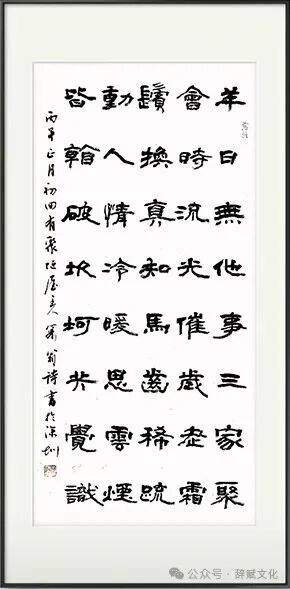 羊日無他事三家聚
會時流光催歲老霜
鬢換真知馬齒稀疏
動人情冷暖思雲煙
皆破坎坷共覺識
丙午正月初四有聚翁詩書於深圳
公众号·辞赋文化